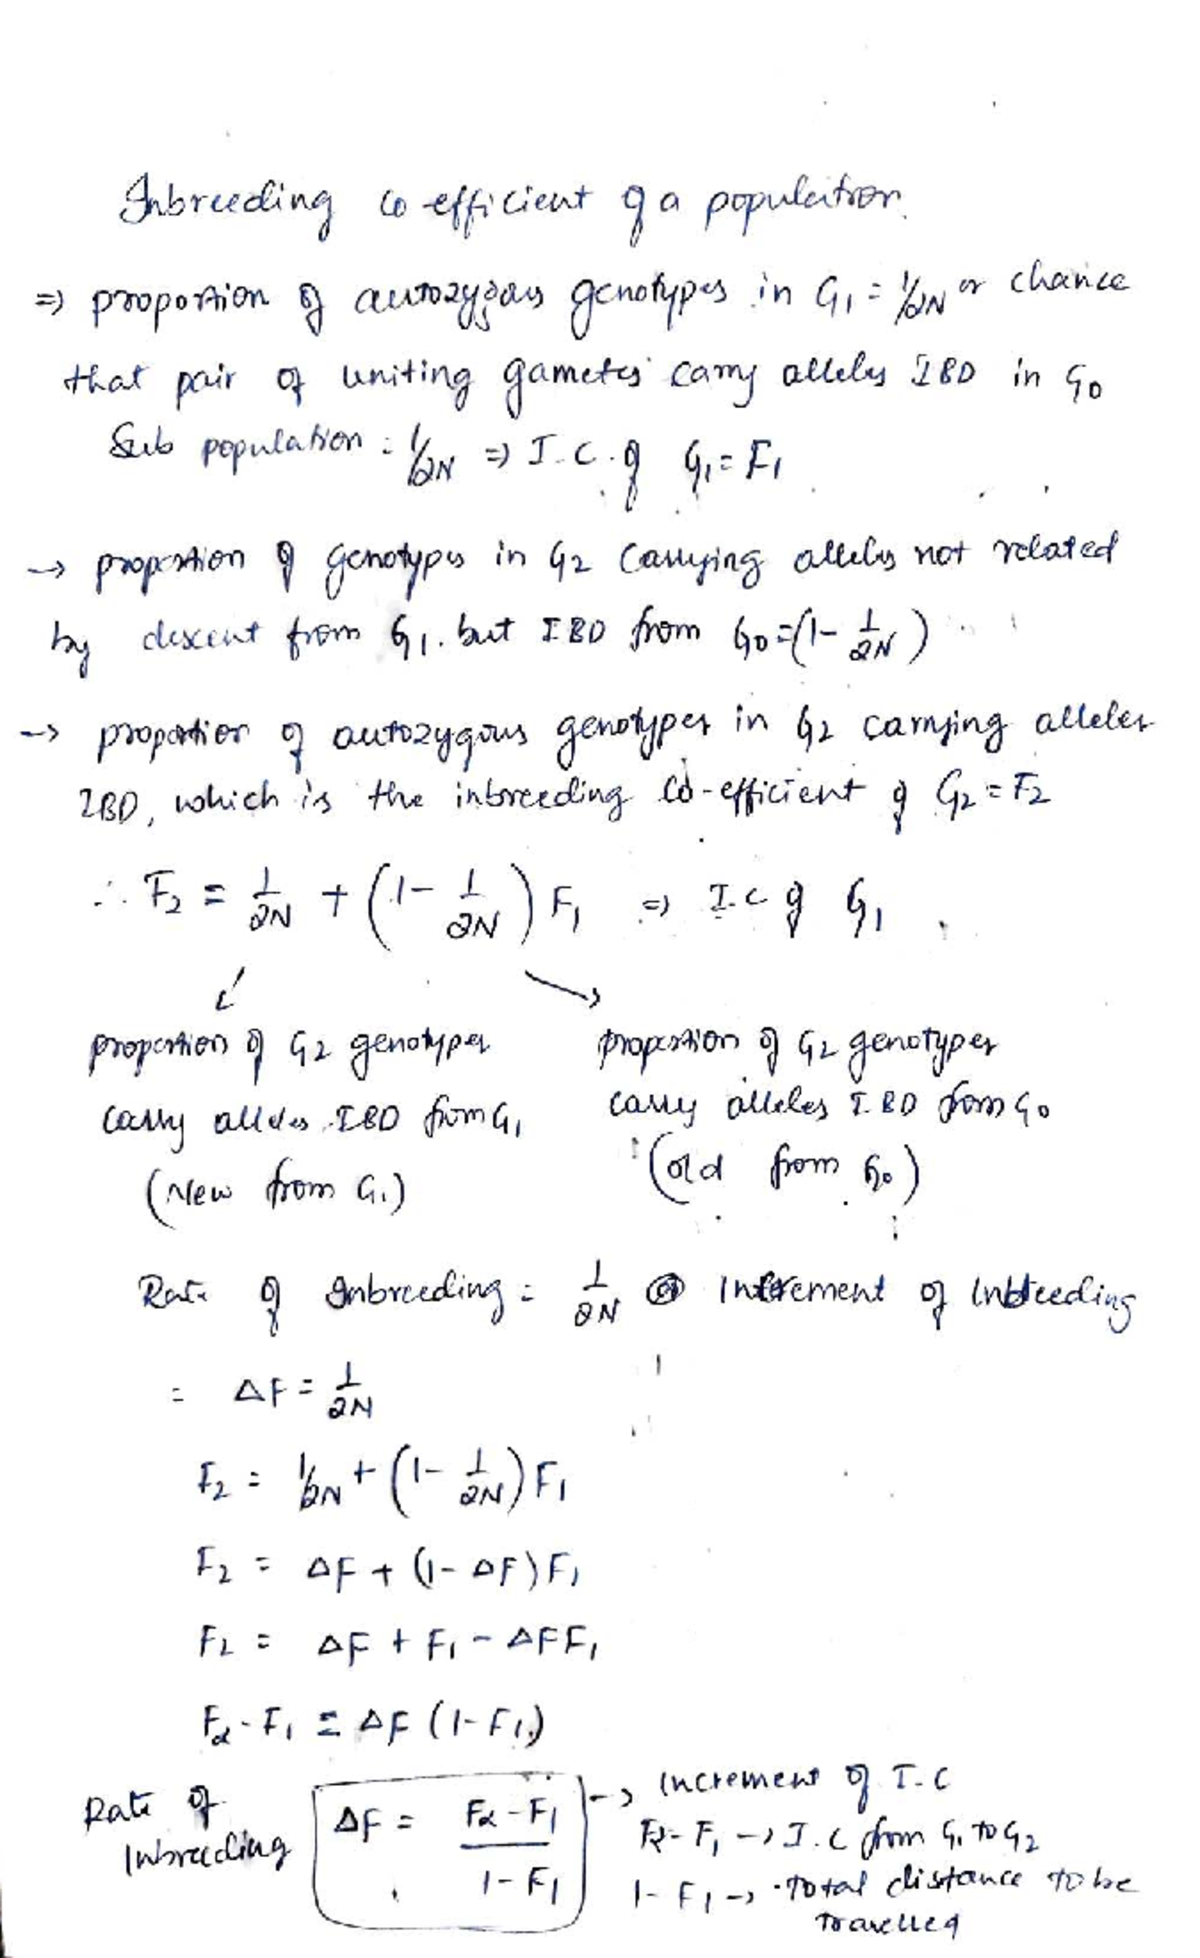 Inbreeding co-efficient of a population.
⇒ proportion of autozygous genotypes in G₁ = 1/2N or chance
that pair of uniting gametes carry alleles IBD in G₀
Sub population = 1/2N ⇒ I.C. of G₁ = F₁
→ proportion of genotypes in G₂ carrying alleles not related
by descent from G₁. but IBD from G₀ = (1 - 1/2N)
→ proportion of autozygous genotypes in G₂ carrying alleles
IBD, which is the inbreeding co-efficient of G₂ = F₂
∴ F₂ = 1/2N + (1 - 1/2N) F₁ ⇒ I.C of G₁
proportion of G₂ genotypes
carry alleles IBD from G₁
(New from G₁)
proportion of G₂ genotypes
carry alleles IBD from G₀
(old from G₀)
Rate of Inbreeding = 1/2N or Increment of Inbreeding
= ΔF = 1/2N
F₂ = 1/2N + (1 - 1/2N) F₁
F₂ = ΔF + (1 - ΔF) F₁
F₂ = ΔF + F₁ - ΔFF₁
F₂ - F₁ = ΔF (1 - F₁)
Rate of Inbreeding ΔF = F₂ - F₁ / 1 - F₁
→ Increment of I.C
F₂ - F₁ → I.C from G₁ to G₂
1 - F₁ → Total distance to be
travelled